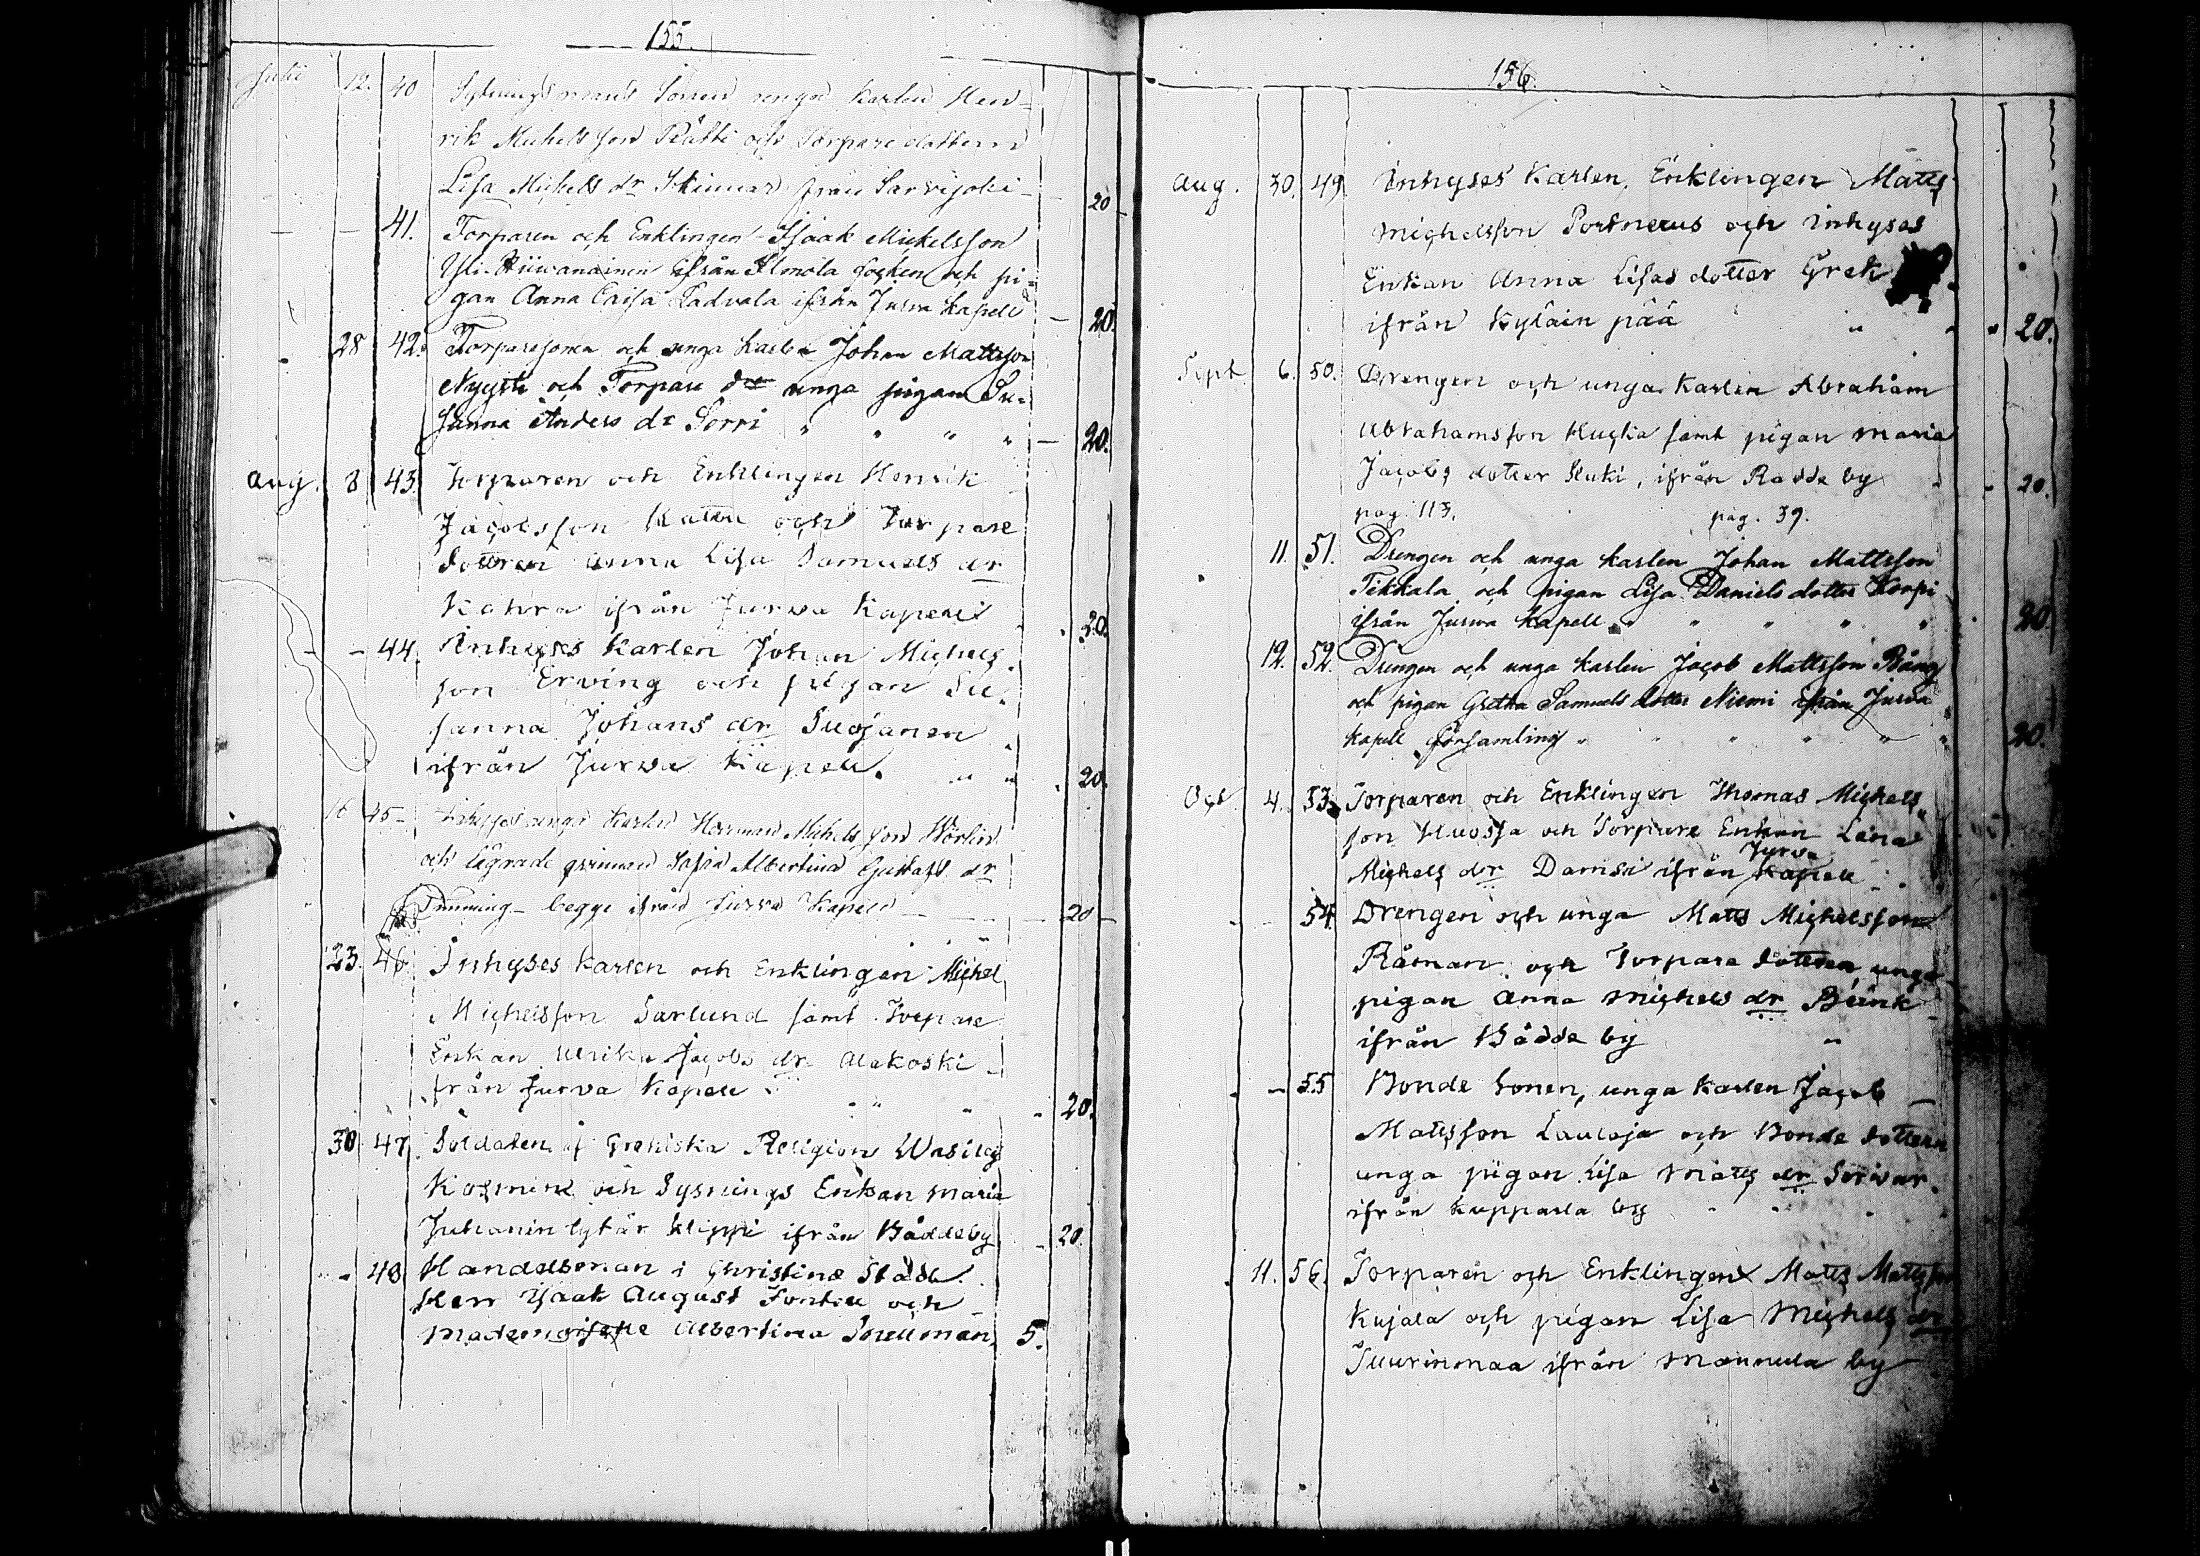 155.
Julii 12. 40 Sytningsmans Sonen unga Karlen Hen-
rik Michelsson Rätti och Torpare dottern
Lisa Michels dr Skinnar från Sarvijoki - 20
41. Torparen och Enklingen Isaak Mickelsson
Yli-Hiiwanainen ifrån Ilmola Socken och pi-
gan Anna Caisa Ladvala ifrån Jurva Kapell - 20.
28 42. Torparesonen och unga Karlen Johan Mattsson
Nyysti och Torpare dr unga pigan Su-
sanna Anders dr Sorri " " " " - 20.
Aug. 8 43. Torparen och Enklingen Henrik
Jacobsson Kattu och Torpare
dottren Anna Lisa Samuels dr
Kohra ifrån Jurva Kapell . 20.
- - 44. Inhyses Karlen Johan Michels
son Erving och pigan Su-
sanna Johans dr Suojanen
ifrån Jurva Kapell. " " . 20.
16 45- unga Karlen Herrman Michelsson Wörlin
och lägrade qvinnan Sofia Albertina Gustafs dr
Timming - begge ifrån Jurva Kapell - 20 -
23. 46. Inhyses karlen och Enklingen Michel
Michelsson Sarlund samt Torpare
Enkan Ulrika Jacobs dr Alakoski -
från Jurva Kapell " " " 20.
30 47. Soldaten af Grekiska Religion Wasilej
Kosmin och Sysnings Enkan Maria
Juhanin tytär Klippi ifrån Båddeby - 20.
" - 48 Handelsman i Christinæ Stad
Herr Isaak August Fontell och -
Mademoiselle Albertina Snellman, 5.
156.
Aug. 30. 49. Inhyses Karlen, Enklingen Matts
Michelsson Portnerus och inhyses
Enkan Anna Lisas dotter Grek
ifrån Kylän pää " " " 20.
Sept. 6. 50. Drengen och unga Karlen Abraham
Abrahamsson Kuckia samt pigan Maria
Jacobs dotter Huki, ifrån Radde by - 20.
pag. 113. pag. 39.
11. 51. Drengen och unga karlen Johan Mattsson
Tikkala och pigan Lisa Daniels dotter Korpi
ifrån Jurva Kapell " " " " " 20.
12. 52. Drengen och unga karlen Jacob Mattsson Bång
och pigan Gretha Samuels dotter Niemi ifrån Jurva
Kapell församling " " " " " " 20.
Oct. 4. 53. Torparen och Enklingen Thomas Michels
son Huossa och Torpare Enkan Lena
Jurva
Michels dr Damsi ifrån Kapell - .
- - 54. Drengen och unga Matts Michelsson
Råman och Torpare dottren unga
pigan Anna Michels dr Bänk
ifrån Bådde by "
- - 55 Bonde Sonen, unga Karlen Jacob -
Mattsson Lauloja och Bonde dottern
unga pigan Lisa Matts dr Sorivar.
ifrån Kupparla by " " " "
. 11. 56. Torparen och Enklingen Matts Mattsson
Kujala och pigan Lisa Michels dr
Suurinmaa ifrån Mannula by